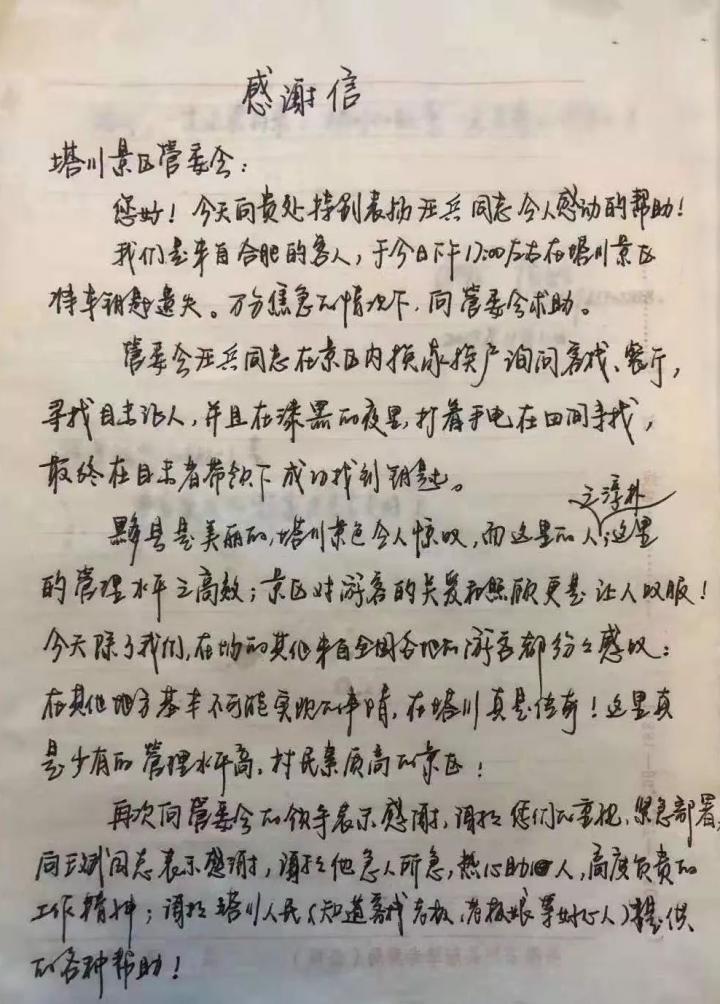 感谢信
塔川景区管委会：
您好！今天向贵处特别表扬汪兵同志令人感动的帮助！
我们是来自合肥的客人，于今日下午17:00左右在塔川景区
将车钥匙遗失。万分焦急的情况下，向管委会求助。
管委会汪兵同志在景区内挨家挨户询问客栈、餐厅，
寻找目击证人，并且在漆黑的夜里，打着手电在田间寻找，
最终在目击者带领下成功找到钥匙。
黟县是美丽的，塔川景色令人惊叹，而这里的人之淳朴，这里
的管理水平之高效；景区对游客的关爱和照顾更是让人叹服！
今天除了我们，在场的其他来自全国各地的游客都纷纷感叹：
在其他地方基本不可能实现的事情，在塔川真是传奇！这里真
是少有的管理水平高、村民素质高的景区！
再次向管委会的领导表示感谢，谢谢您们的重视，紧急部署，
向汪兵同志表示感谢，谢谢他急人所急，热心助人，高度负责的
工作精神；谢谢塔川人民（知道客栈老板、老板娘等好心人）提供
的各种帮助！